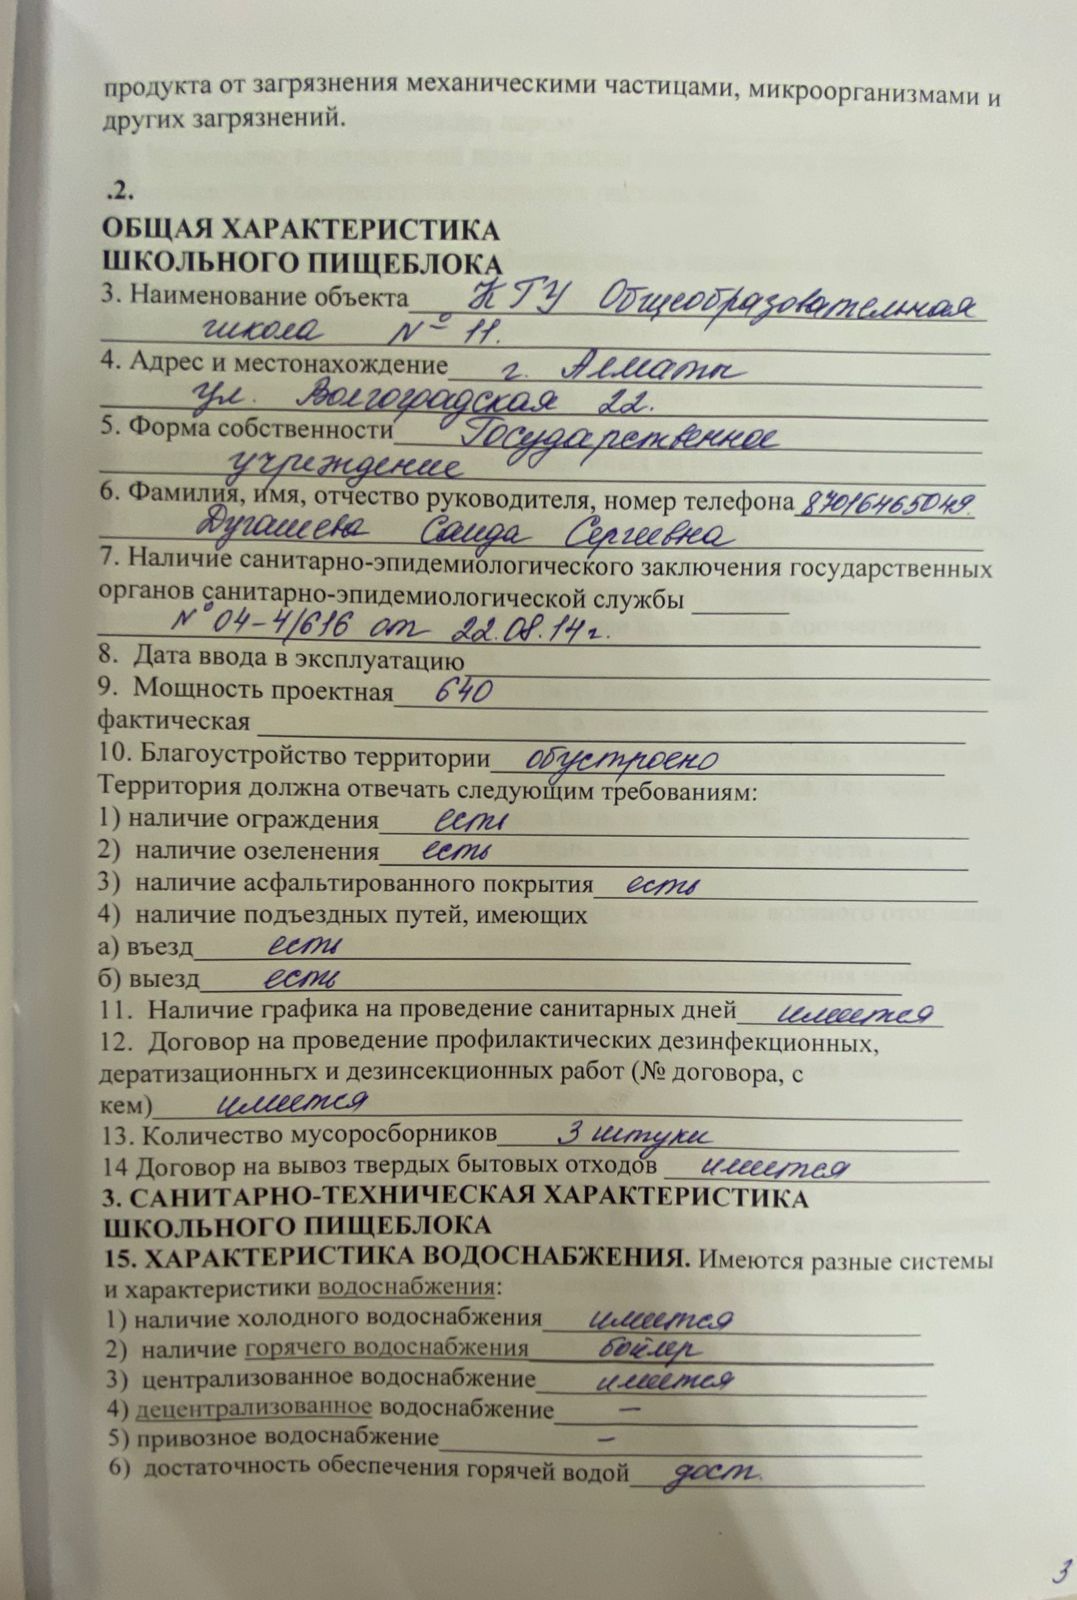 продукта от загрязнения механическими частицами, микроорганизмами и
других загрязнений.
.2.
ОБЩАЯ ХАРАКТЕРИСТИКА
ШКОЛЬНОГО ПИЩЕБЛОКА
3. Наименование объекта КГУ Общеобразовательная
школа № 11.
4. Адрес и местонахождение г. Алматы
ул. Волгоградская 22.
5. Форма собственности Государственное
учреждение
6. Фамилия, имя, отчество руководителя, номер телефона 87016465049.
Дугашева Саида Сергеевна
7. Наличие санитарно-эпидемиологического заключения государственных
органов санитарно-эпидемиологической службы
№ 04-4/616 от 22.08.14г.
8. Дата ввода в эксплуатацию
9. Мощность проектная 640
фактическая
10. Благоустройство территории обустроено
Территория должна отвечать следующим требованиям:
1) наличие ограждения есть
2) наличие озеленения есть
3) наличие асфальтированного покрытия есть
4) наличие подъездных путей, имеющих
а) въезд есть
б) выезд есть
11. Наличие графика на проведение санитарных дней имеется
12. Договор на проведение профилактических дезинфекционных,
дератизационньгх и дезинсекционных работ (№ договора, с
кем) имеется
13. Количество мусоросборников 3 штуки
14 Договор на вывоз твердых бытовых отходов имеется
3. САНИТАРНО-ТЕХНИЧЕСКАЯ ХАРАКТЕРИСТИКА
ШКОЛЬНОГО ПИЩЕБЛОКА
15. ХАРАКТЕРИСТИКА ВОДОСНАБЖЕНИЯ. Имеются разные системы
и характеристики водоснабжения:
1) наличие холодного водоснабжения имеется
2) наличие горячего водоснабжения бойлер
3) централизованное водоснабжение имеется
4) децентрализованное водоснабжение –
5) привозное водоснабжение –
6) достаточность обеспечения горячей водой дост.
3